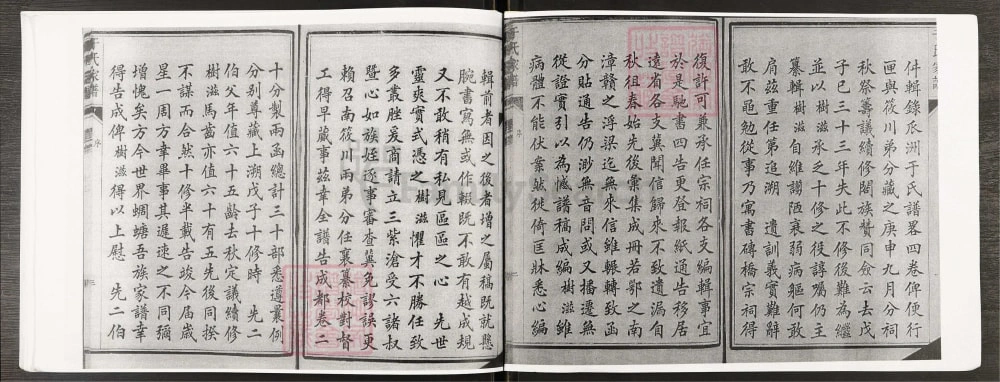 件輯錄瓜洲于氏譜畧四卷俾便行
匣與筱川弟分藏之庚申九月分祠
秋祭籌議續修闔族贊同僉云去戊
子已三十三年失此不修後難為繼
並以樹滋承乏十修之役諄囑仍主
纂輯樹滋自維謭陋衰弱病軀何敢
肩茲重任第追溯　遺訓義實難辭
敢不黽勉從事乃寓書磚橋宗祠得
復許可兼承任宗祠各支編輯事宜
於是馳書四告更登報紙通告移居
遠省各支冀聞信歸來不致遺漏自
秋徂春始先後彙集成冊若鄂之南
漳贛之浮梁迄無來信雖輾轉致函
分貼通告仍渺無音問或又播遷無
從證實引以為憾譜稿成編樹滋雖
病體不能伏案兢兢徙倚匡牀悉心編
輯前者因之後者增之屬稿既就懸
腕書寫無或作輟既不敢有越成規
又不敢稍有私見區區之心　先世
靈爽實式憑之樹滋懼才不勝任致
多叢脞爰商請立三紫滄受六諸叔
暨心如族姪逐事審查冀免謬誤更
賴召南筱川兩弟分任襄纂校對督
工得早蕆事茲幸全譜告成都卷二
十分製兩函總計三十部悉遵曩例
分別尊藏上溯戊子十修時　先二
伯父年值六十五齡去秋定議續修
樹滋馬齒亦值六十有五先後同揆
不謀而合然十修半載告竣今屆歲
星一周方幸畢事其遲速之不同彌
增愧矣方今世界蜩螗吾族家譜幸
得告成俾樹滋得以上慰　先二伯